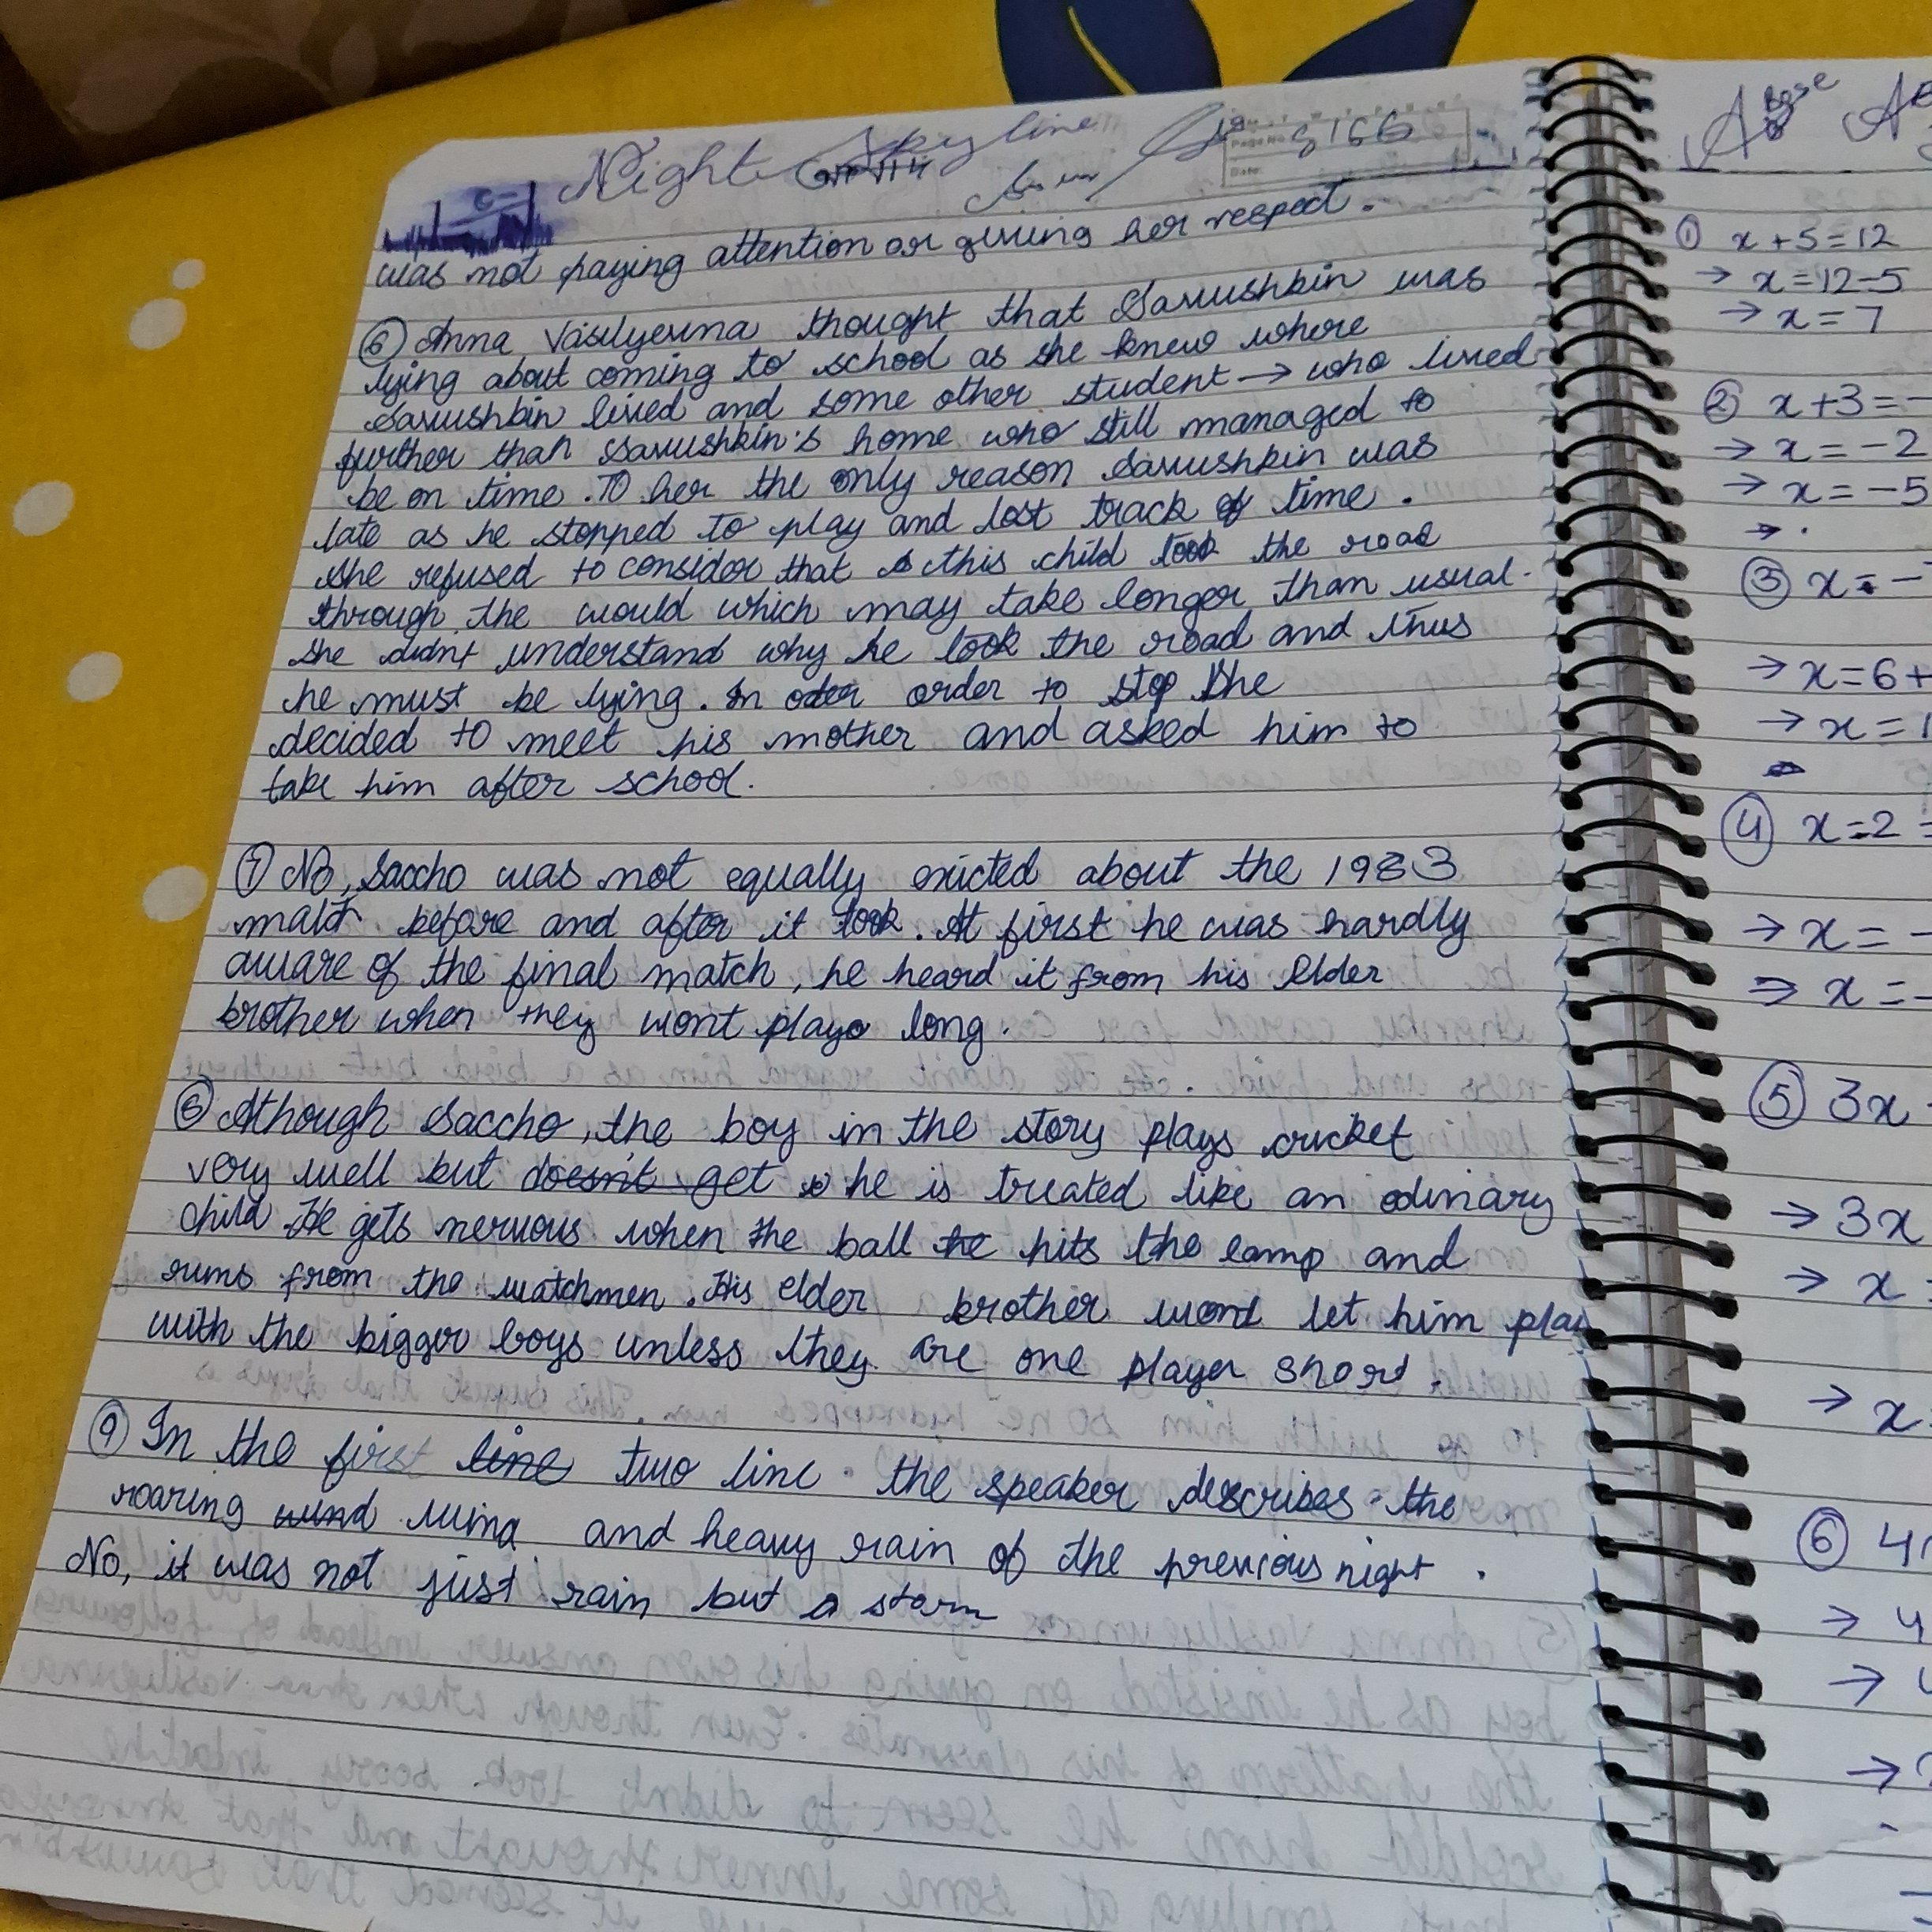 Night Skyline
6166
was not paying attention or giving her respect.
⑥ Anna Vasilyevna thought that Savushkin was
lying about coming to school as she knew where
Savushkin lived and some other student → who lived
further than Savushkin's home who still managed to
be on time. To her the only reason Savushkin was
late as he stopped to play and lost track of time.
She refused to consider that this child took the road
through the would which may take longer than usual.
She didnt understand why he took the road and thus
he must be lying. In order to stop She
decided to meet his mother and asked him to
take him after school.
⑦ No, Saccho was not equally exicted about the 1983
match before and after it took. At first he was hardly
aware of the final match, he heard it from his elder
brother when they wont playo long.
⑧ Although Saccho, the boy in the story plays cricket
very well but doesn't get he is treated like an odinary
child. He gets nervous when the ball he hits the lamp and
runs from the watchmen. His elder brother wont let him play
with the bigger boys unless they are one player short.
⑨ In the first line two line. the speaker describes the
roaring wind wind and heavy rain of the previous night.
No, it was not just rain but a storm
Base
① x+5=12
→ x=12-5
→ x=7
② x+3=-
→ x=-2
→ x=-5
→ .
③ x=-
→ x=6+
→ x=1
④ x=2=
→ x=-
⇒ x=-
⑤ 3x
→ 3x
→ x
→ x
⑥ 4
→ 4
→
→